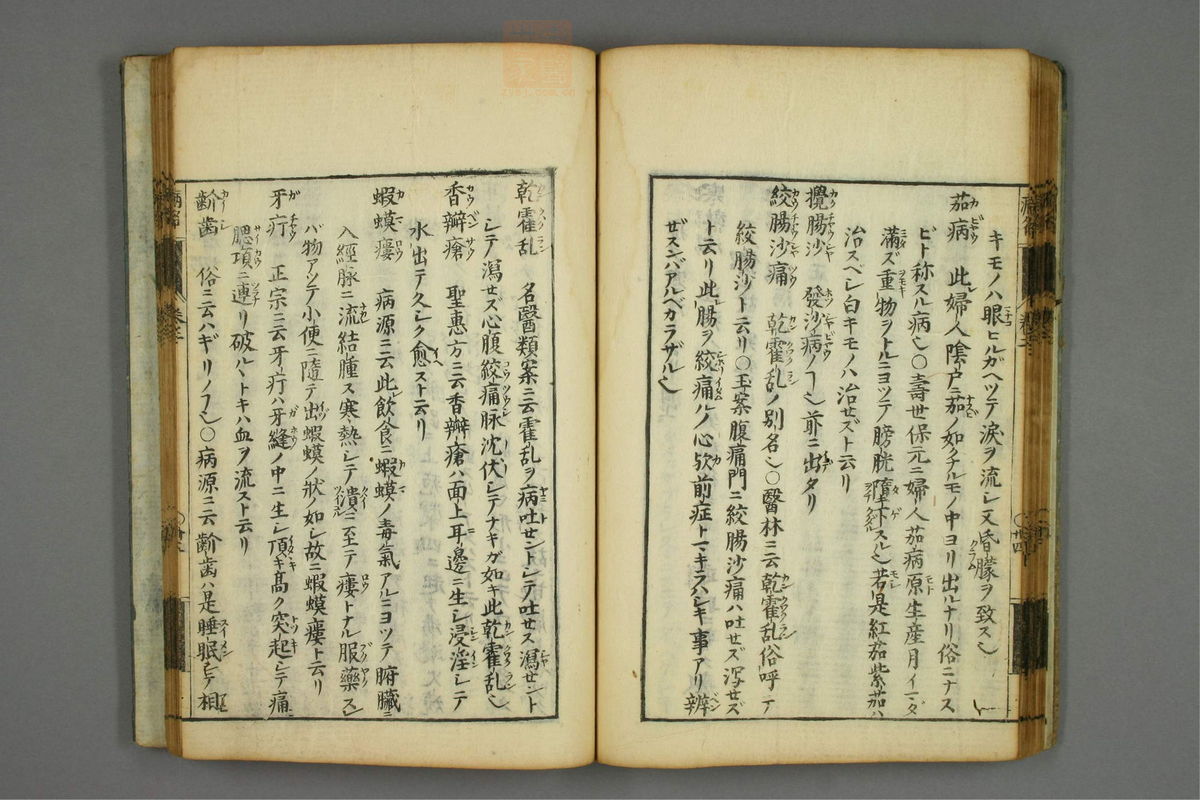 キモノハ眼ヒルガヘツテ涙ヲ流シ又昏朦ヲ致ス〆
茄病 此婦人陰戸ニ茄ノ如クナルモノ中ヨリ出ルナリ俗ニナス
ビト称スル病〆〇壽世保元ニ婦人茄病原生産月イマダ
滿ズ重物ヲトルニヨツテ膀胱墮下スル〆若是紅茄紫茄ハ
治スベシ白キモノハ治セズト云リ
攪腸沙 發沙病ノヿ〆前ニ出タリ
絞腸沙痛 乾霍乱ノ別名〆〇醫林ニ云乾霍乱俗呼テ
絞腸沙ト云リ〇玉案腹痛門ニ絞腸沙痛ハ吐セズ泻セズ
ト云リ此腸ヲ絞痛ルノ心欤前症トマキラハシキ事アリ辨
ゼスンバアルベカラザル〆
乾霍乱 名醫類案ニ云霍乱ヲ病吐セントシテ吐セス瀉セント
シテ瀉セズ心腹絞痛脉沈伏シテナキガ如キ此乾霍乱〆
香瓣瘡 聖惠方ニ云香瓣瘡ハ面上耳邊ニ生シ浸淫シテ
水出テ久シク愈スト云リ
蝦蟆瘻 病源ニ云此飲食ニ蝦蟆ノ毒氣アルニヨツテ腑臓ニ
入經脉ニ流結腫ス寒熱シテ潰ニ至テ瘻トナル服藥スレ
バ物アツテ小便ニ隨テ出蝦蟆ノ狀ノ如シ故ニ蝦蟆瘻ト云リ
牙疔 正宗ニ云牙疔ハ牙縫ノ中ニ生シ頂キ高ク突起シテ痛
腮項ニ連リ破ルヽトキハ血ヲ流スト云リ
齘歯 俗ニ云ハギリノヿ〆〇病源ニ云齘歯ハ是睡眠シテ相